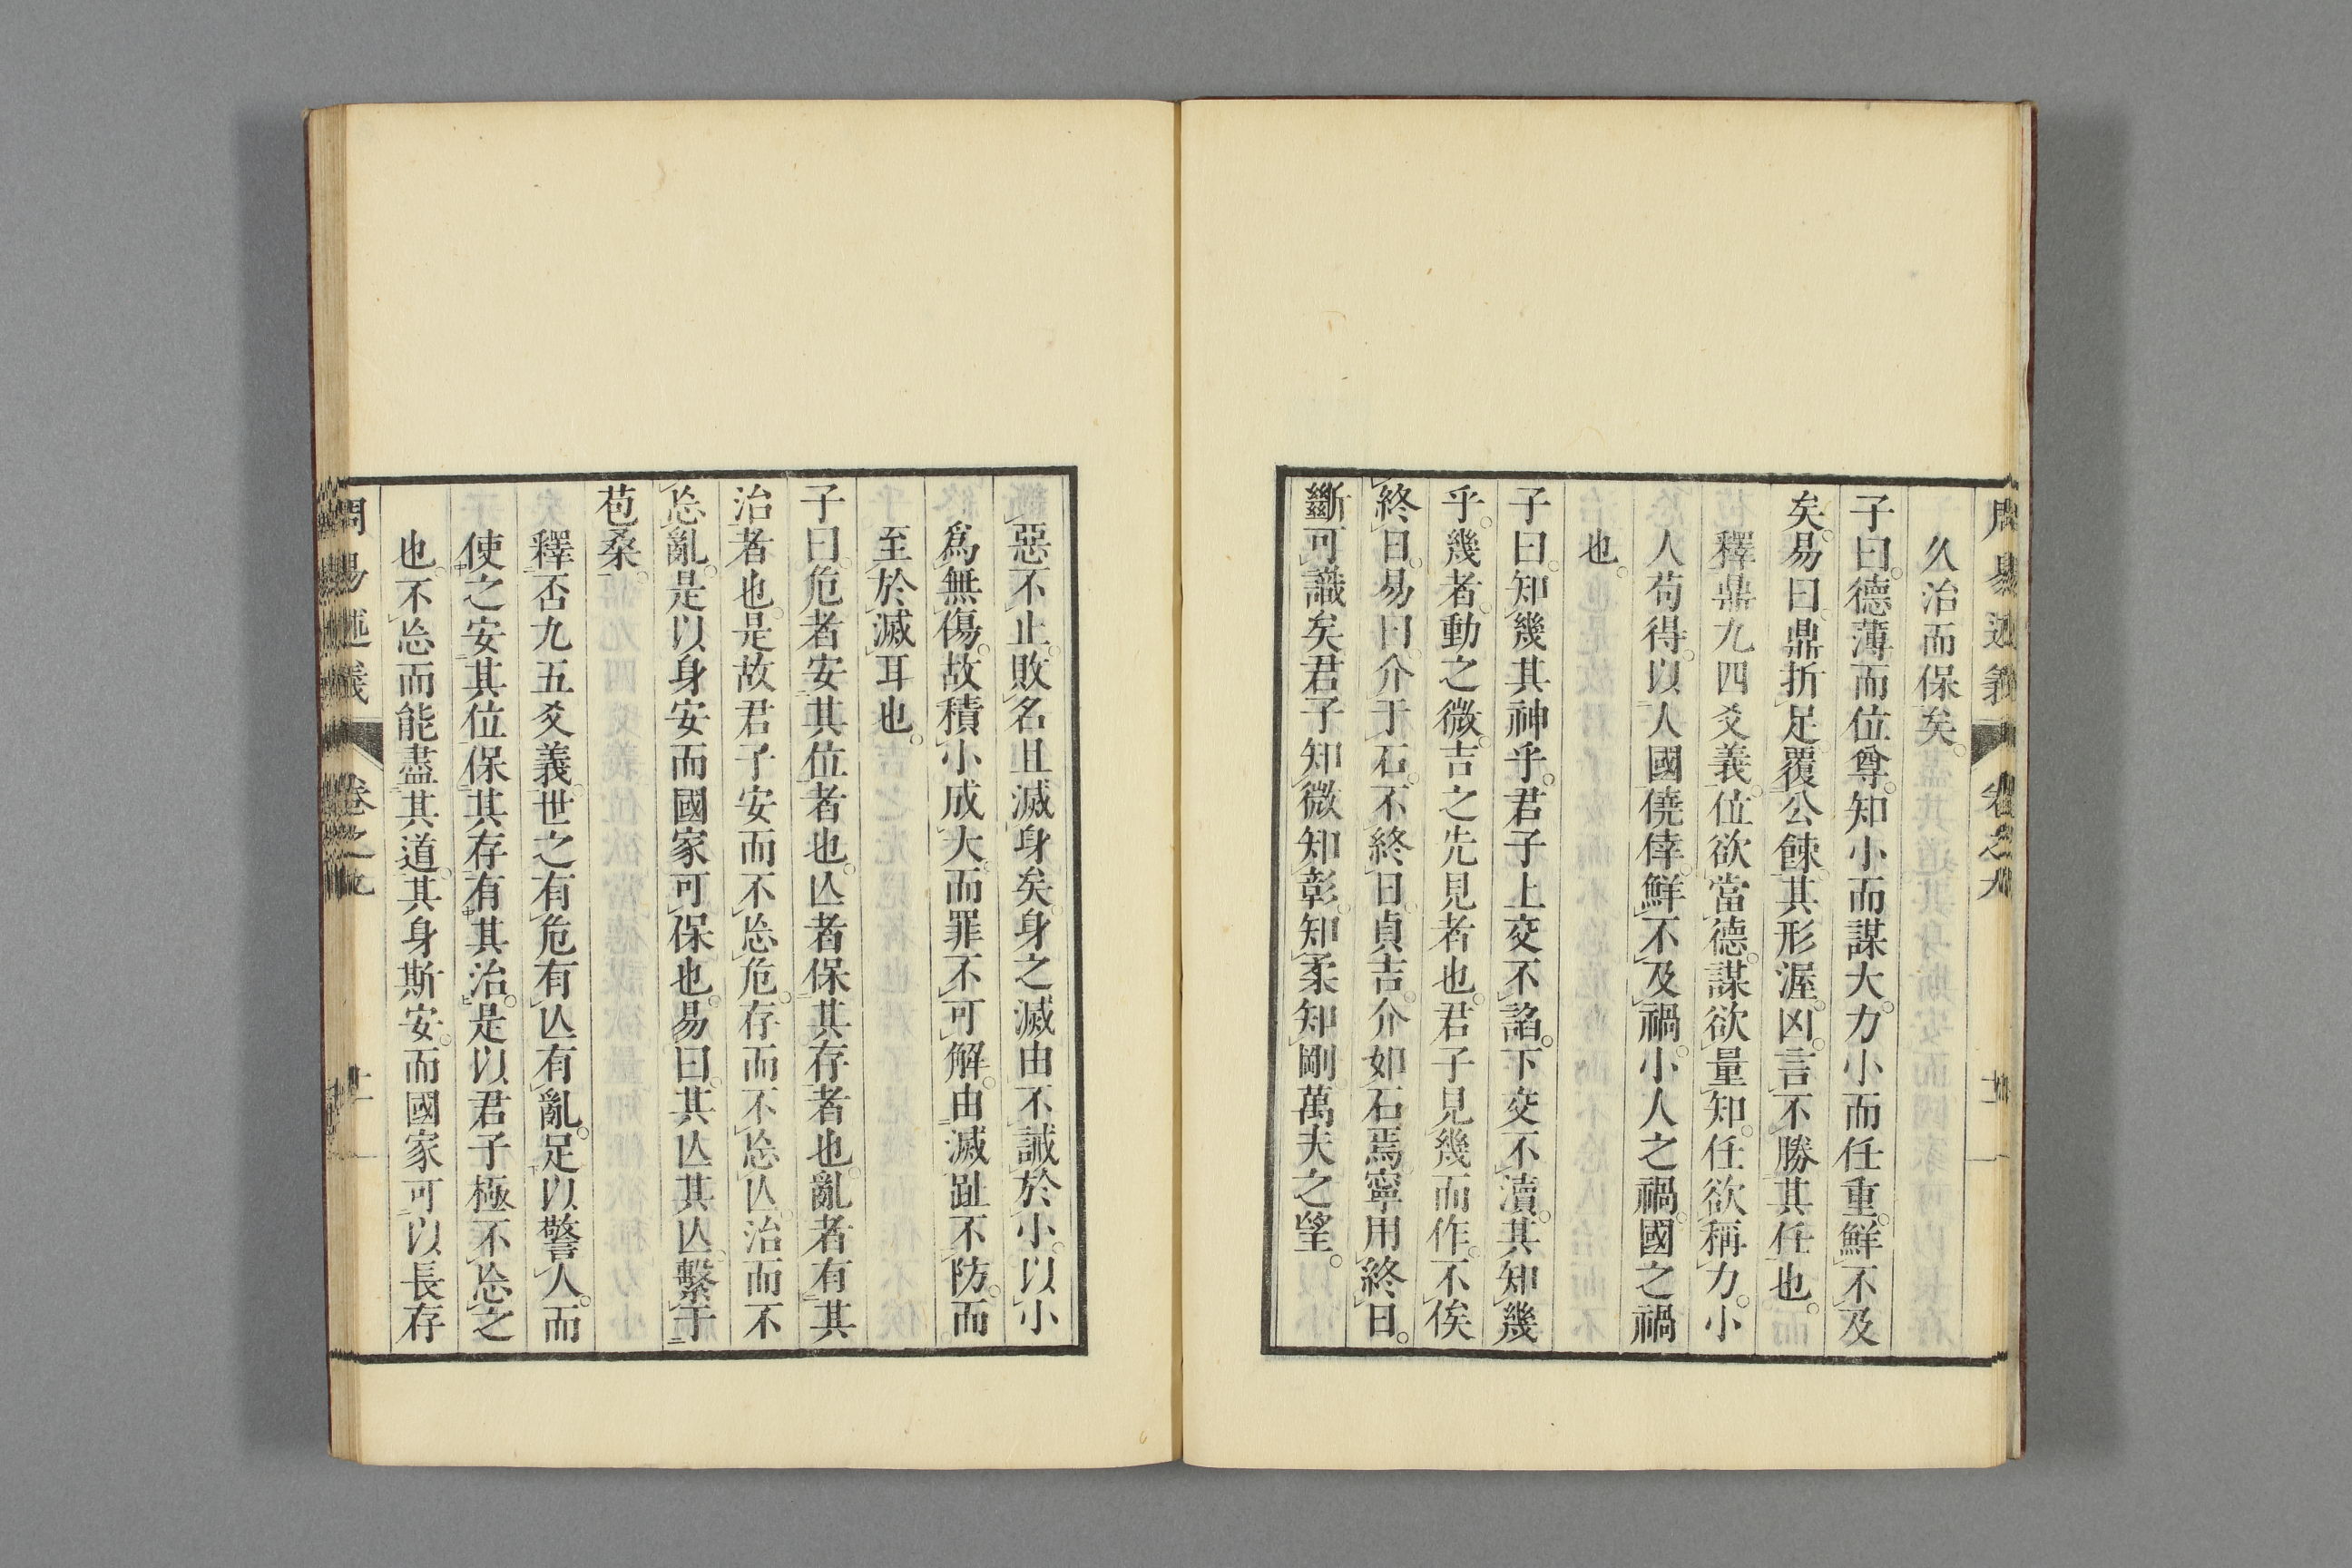 周易述義 卷之九
久治而保矣。
子曰。德薄而位尊。知小而謀大。力小而任重。鮮不及
矣。易曰。鼎折足。覆公餗。其形渥。凶。言不勝其任也。
釋鼎九四爻義。位欲當德。謀欲量知。任欲稱力。小
人苟得。以人國僥倖。鮮不及禍。小人之禍。國之禍
也。
子曰。知幾其神乎。君子上交不諂。下交不瀆。其知幾
乎。幾者。動之微。吉之先見者也。君子見幾而作。不俟
終日。易曰。介于石。不終日。貞吉。介如石焉。寧用終日。
斷可識矣。君子知微知彰。知柔知剛。萬夫之望。
惡不止。敗名且滅身矣。身之滅由不誡於小。以小
爲無傷。故積小成大。而罪不可解。由滅趾不防。而
至於滅耳也。
子曰。危者安其位者也。亾者保其存者也。亂者有其
治者也。是故君子安而不㤀危。存而不㤀亾。治而不
㤀亂。是以身安而國家可保也。易曰。其亾其亾。繫于
苞桑。
釋否九五爻義。世之有危有亾有亂。足以警人。而
使之安其位保其存有其治。是以君子極不㤀之
也。不㤀而能盡其道。其身斯安。而國家可以長存
周易述義 卷之九